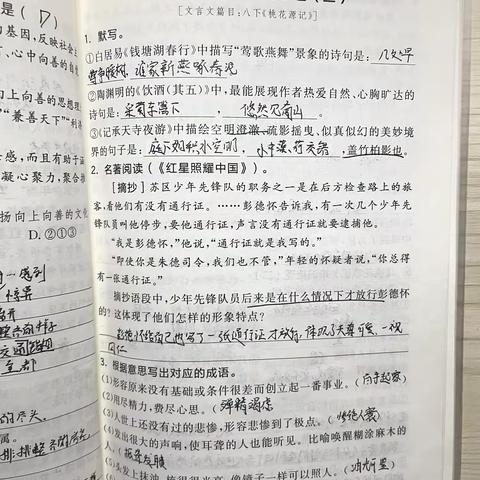 是( D )
的基因,反映社会主
下、心中向善的自
向上向善的思想理
“兼善天下”“利
共感,而且有助于
凝心聚力,聚合排
扬向上向善的文化
D. ②①③
[文言文篇目:八下《桃花源记》]
1. 默写。
①白居易《钱塘湖春行》中描写“莺歌燕舞”景象的诗句是: 几处早
莺争暖树, 谁家新燕啄春泥
②陶渊明的《饮酒(其五)》中,最能展现作者热爱自然、心胸旷达的
诗句是: 采菊东篱下 , 悠然见南山 。
③《记承天寺夜游》中描绘空明澄澈、疏影摇曳、似真似幻的美妙境
界的句子是: 庭下如积水空明 , 水中藻、荇交横 ,盖竹柏影也。
2. 名著阅读(《红星照耀中国》)。
[摘抄] 苏区少年先锋队的职务之一是在后方检查路上的旅
客,看他们有没有通行证。……彭德怀告诉我,有一次几个少年先
锋队员叫他停步,要他通行证,声言没有通行证就要逮捕他。
“我是彭德怀,”他说,“通行证就是我写的。”
“即使你是朱德司令,我们也不管,”年轻的怀疑者说,“你总得
有一张通行证。”
摘抄语段中,少年先锋队员后来是在什么情况下才放行彭德怀
的?这体现了他们怎样的形象特点?
彭德怀给自己也写了一张通行证才放行,体现了天真可爱、一视
同仁
3. 根据意思写出对应的成语。
(1)形容原来没有基础或条件很差而创立起一番事业。(白手起家)
(2)用尽精力,费尽心思。( 殚精竭虑 )
(3)人世上还没有过的悲惨,形容悲惨到了极点。(惨绝人寰)
(4)发出很大的声响,使耳聋的人也能听见。比喻唤醒糊涂麻木的
人。( 振聋发聩 )
(5)头发上抹油,梳得很光亮,像镜子一样可以照人。(油光可鉴)